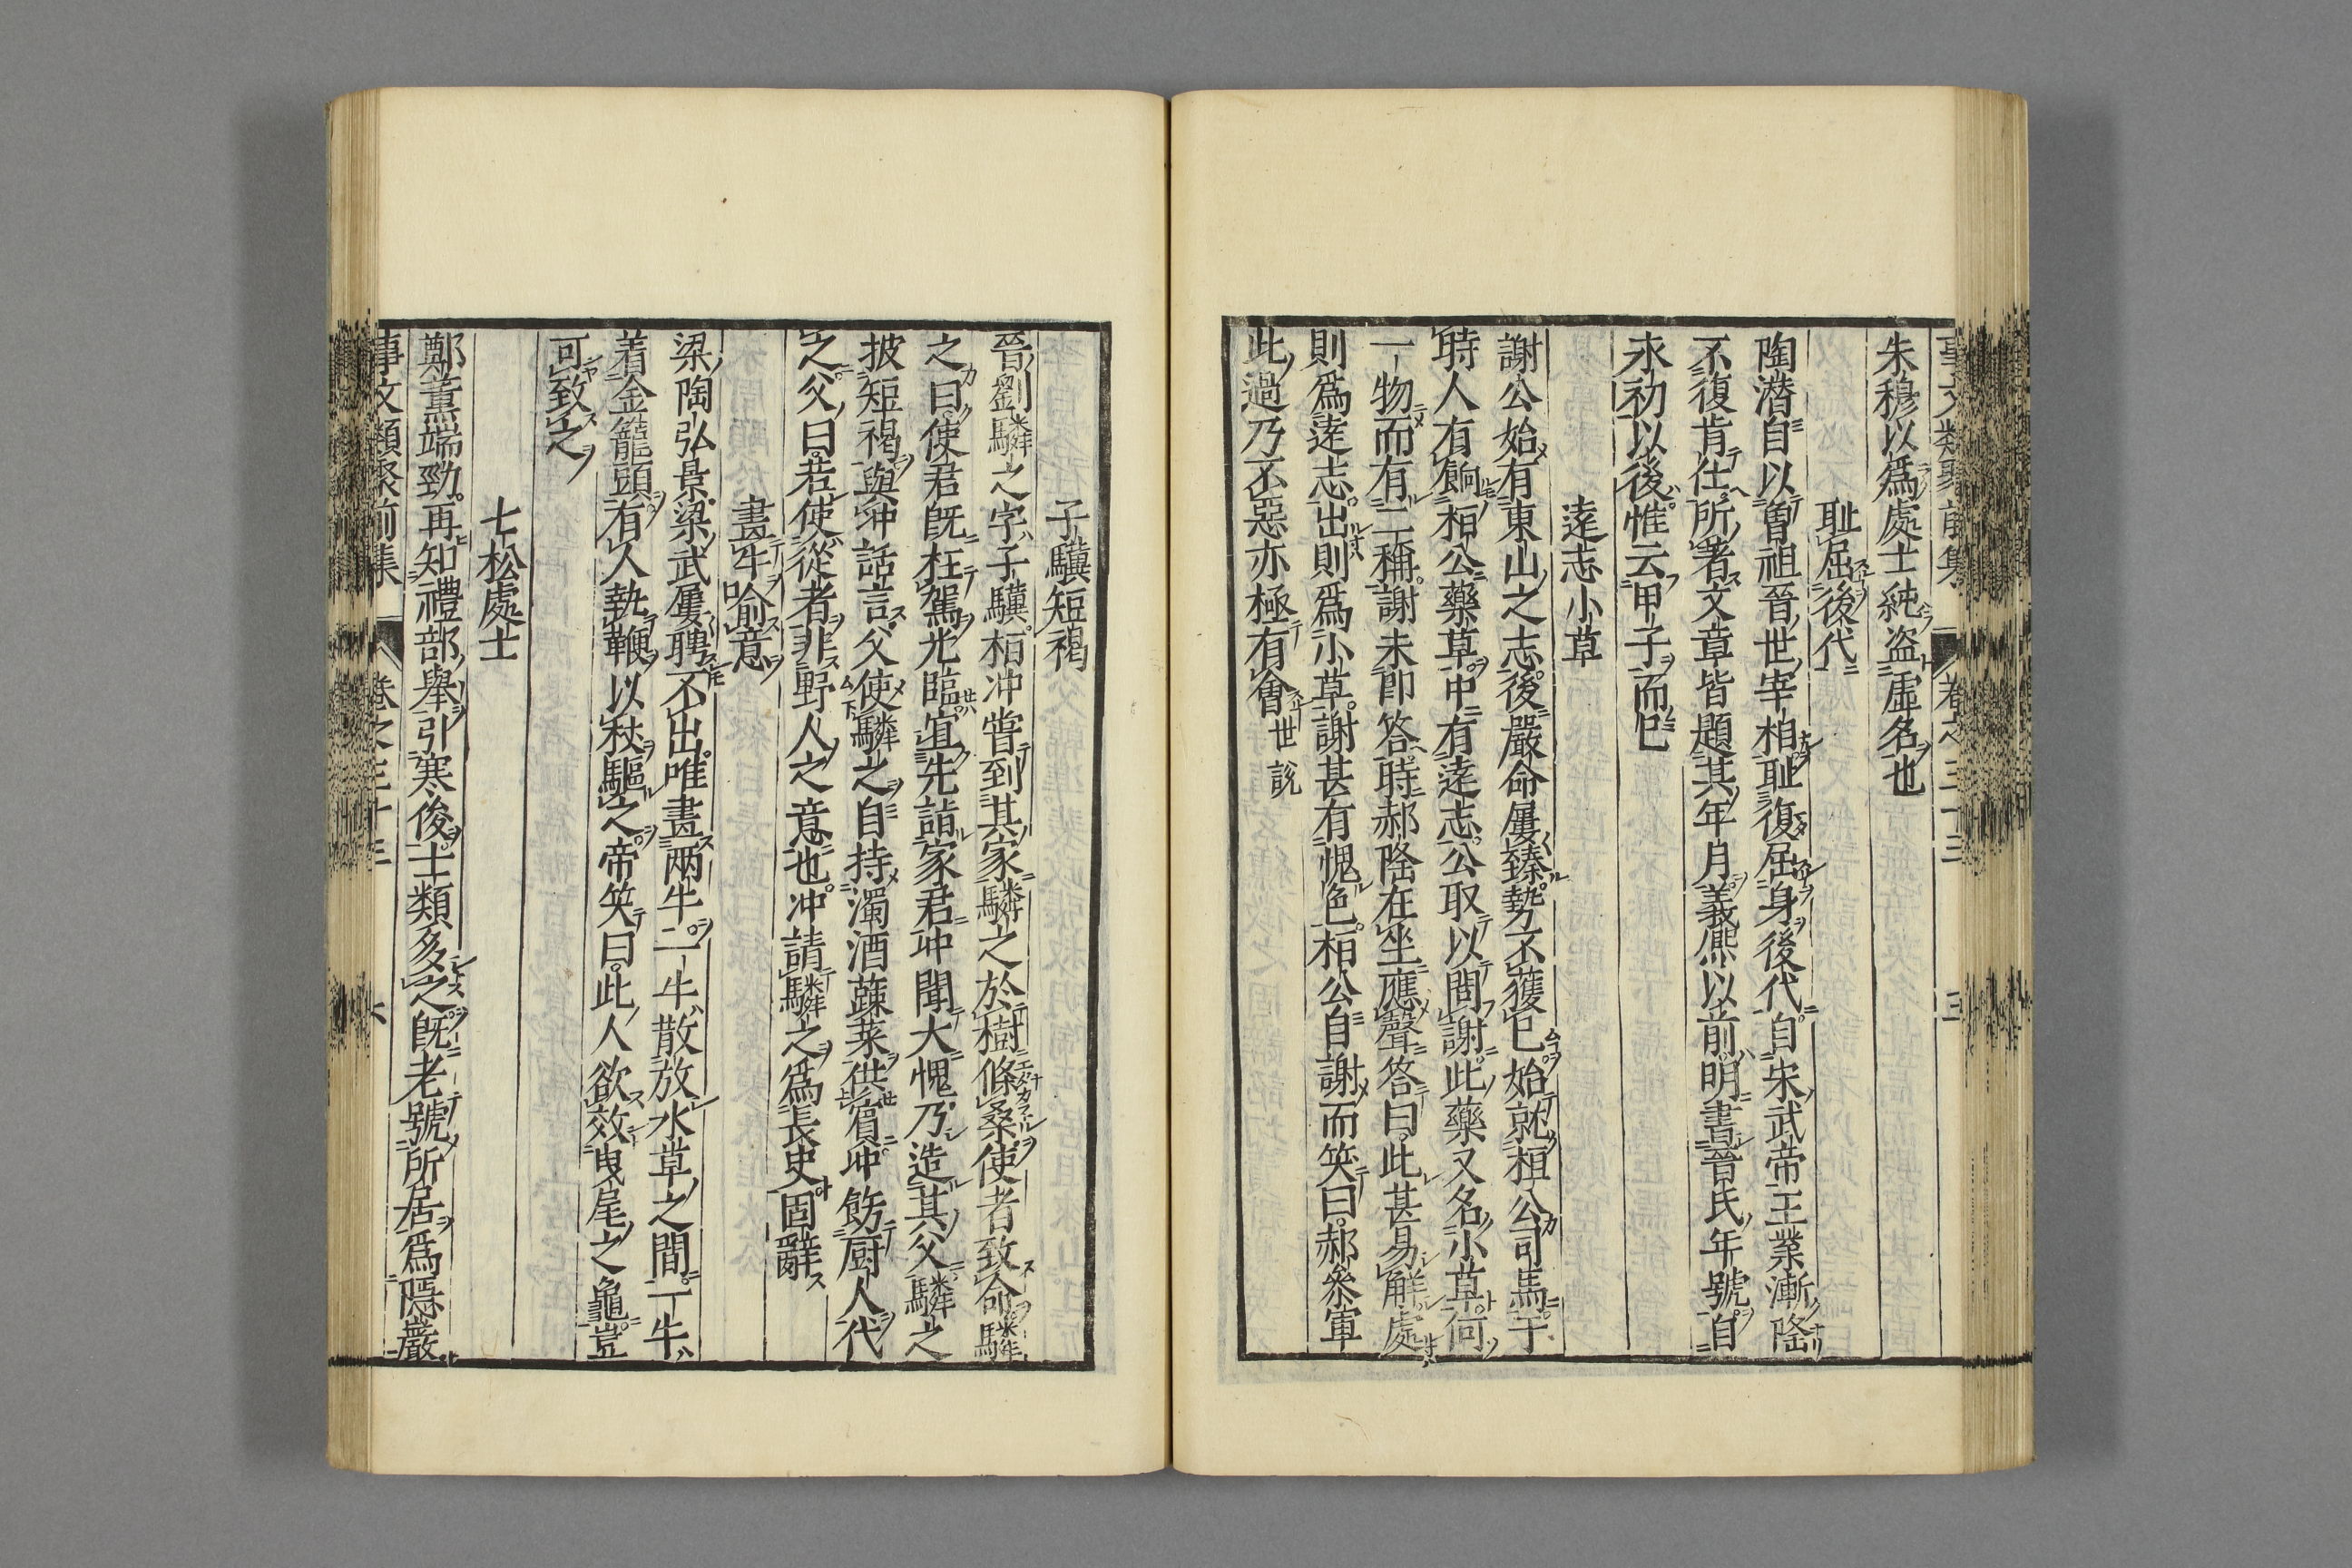 事文類聚前集
卷之三十三
朱穆以爲處士純盗虛名也
耻屈後代
陶潜自以曽祖晉世宰相耻復屈身後代自宋武帝王業漸隆
不復肯仕所著文章皆題其年月義熈以前明書晉氏年號自
永初以後惟云甲子而已
遠志小草
謝公始有東山之志後嚴命屢臻勢不獲已始就桓公司馬于
時人有餉桓公藥草中有遠志公取以問謝此藥又名小草何
一物而有二稱謝未即答時郝隆在坐應聲答曰此甚易解處
則爲遠志出則爲小草謝甚有愧色桓公自謝而笑曰郝參軍
此過乃不惡亦極有會世說
子驥短褐
晉劉驎之字子驥桓冲嘗到其家驎之於樹條桑使者致命驎
之曰使君既枉駕光臨宜先詣家君冲聞大愧乃造其父驎之
披短褐與冲話言父使驎之自持濁酒蔬菜供賓冲飭厨人代
之父曰若使從者非野人之意也冲請驎之爲長史固辭
畫牛喻意
梁陶弘景梁武屢聘不出唯畫两牛一牛散放水草之間一牛
着金籠頭有人執鞭以杖驅之帝笑曰此人欲效曳尾之龜豈
可致之
七松處士
鄭薰端勁再知禮部舉引寒俊士類多之既老號所居爲隱巖
事文類聚前集
卷之三十三
六